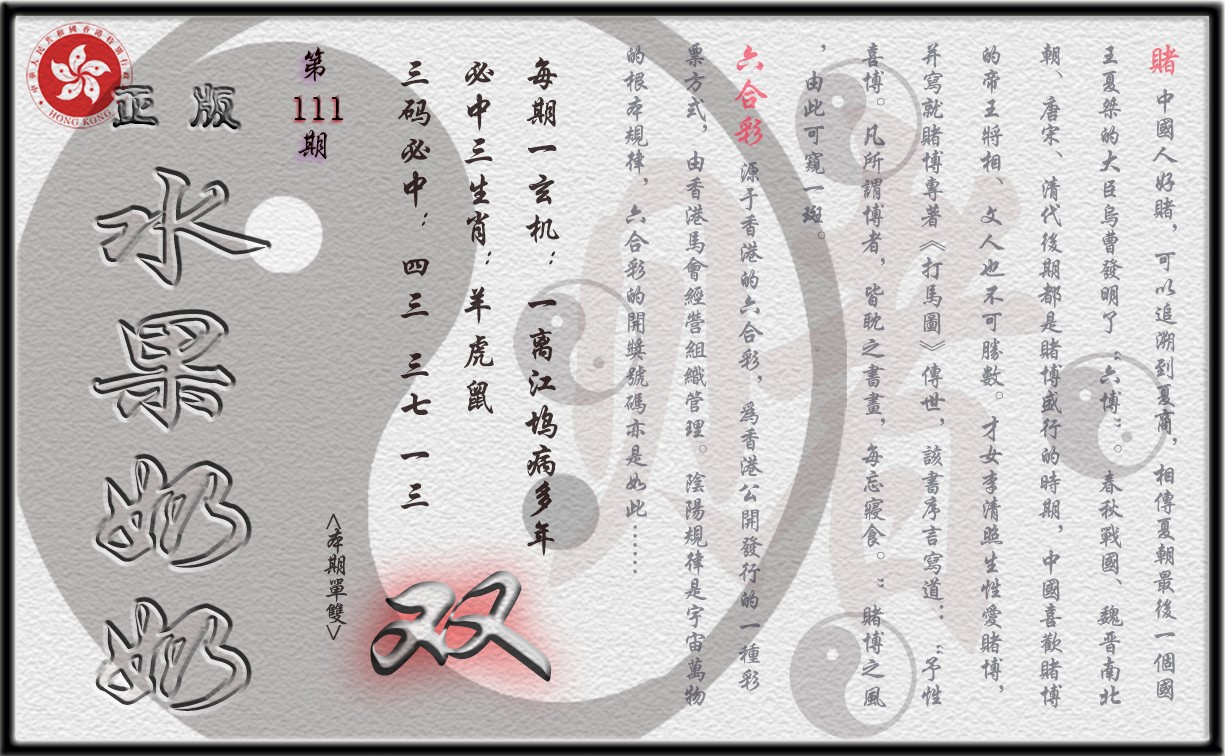 賭 中國人好賭，可以追溯到夏商，相傳夏朝最後一個國
王夏桀的大臣烏曹發明了“六博”。春秋戰國、魏晋南北
朝、唐宋、清代後期都是賭博盛行的時期，中國喜歡賭博
的帝王將相、文人也不可勝數。才女李清照生性愛賭博，
并寫就賭博專著《打馬圖》傳世，該書序言寫道：“予性
喜博。凡所謂博者，皆眈之書畫，每忘寢食。”賭博之風
，由此可窺一斑。
六合彩 源于香港的六合彩，爲香港公開發行的一種彩
票方式，由香港馬會經營組織管理。陰陽規律是宇宙萬物
的根本規律，六合彩的開獎號碼亦是如此……
每期一玄机：一离江坞病多年
必中三生肖：羊虎鼠
三码必中：四三 三七 一三
<本期單雙>
双
第
111
期
正版
水果奶奶
中華人民共和國香港特別行政區
HONG KONG